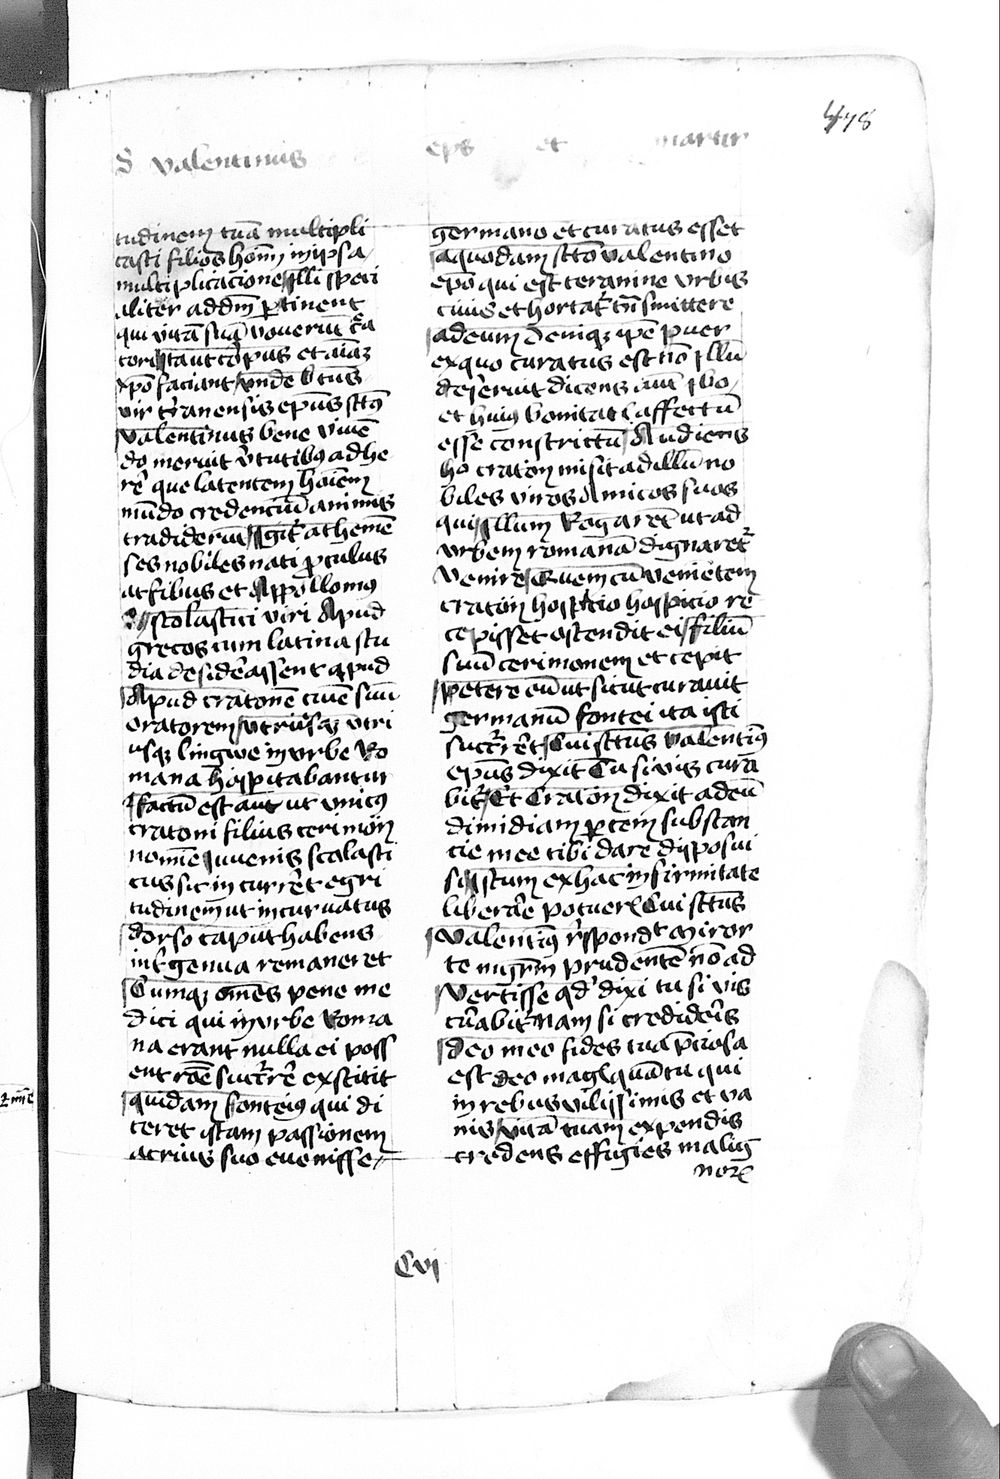 478
S valentinus eps et martir
tudinem tuā multipli
casti filios hom̄ in ipsa
multiplicacione Illi speci
aliter ad dm̄ ptinent
qui vitā suā voverūt
corpus et aīaz
xpō faciant vnde btus
vir epūs sctus
valentinus bene viuē
do meruit vtutibus adhe
rē que latentem hoīem
mūdo credenciū animis
tradiderūt Igit athenie
ses nobiles nati pculus
atfibus et Appollonius
scolastici viri Apud
grecos cum latina stu
dia desiderassent apud
Apud cratonē ciuē suū
oratorem vtriusqz vtri
usqz lingwe in vrbe Ro
mana hospitabantur
factū est aut ut vnicus
cratoni filius cerimon
nomīe iuuenis scolasti
cus sic in curreret egri
tudinem ut incuruatus
dorso caput habens
int genua remaneret
Cumqz omēs pene me
dici qui in vrbe Roma
na erant nulla ei poss
ent rōe succrrē exstitit
quidam fonteius qui di
ceret istam passionem
acrius suo euenisse
germano et curatus esset
a quodam sctō valentino
epō qui est teranine vrbis
ciuis et hortat mittere
ad eum Deniqz ipē puer
ex quo curatus est nō illū
deseruit dicens
et huius bonitatis affectū
esse constrictū Audiens
ho craton misit ad illū no
biles viros Amicos suos
qui illum Rogarēt ut ad
vrbem romanā dignaret
venire Quem cū veniētem
craton hospicio hospicio re
cepisset ostendit ei filiū
suū cerimonem et cepit
petere eū ut sicut curauit
germanū fontei ita isti
succrrēt Cui sctus valentius
epūs dixit Tu si vis cura
bit Et Craton dixit ad eū
dimidiam ptem substan
cie mee tibi dare disposui
si istum ex hac infirmitate
liberāe potueris Cui sctus
valentius respondt Miror
te nigrm̄ prudentē nō ad
vertisse qd dixi tu si vis
curabit Nam si credideris
deo meo fides tua pciosa
est deo magis quā tu qui
in rebus vilissimis et va
nis vitā tuam expendis
credens effigies malig
nor
Cvi